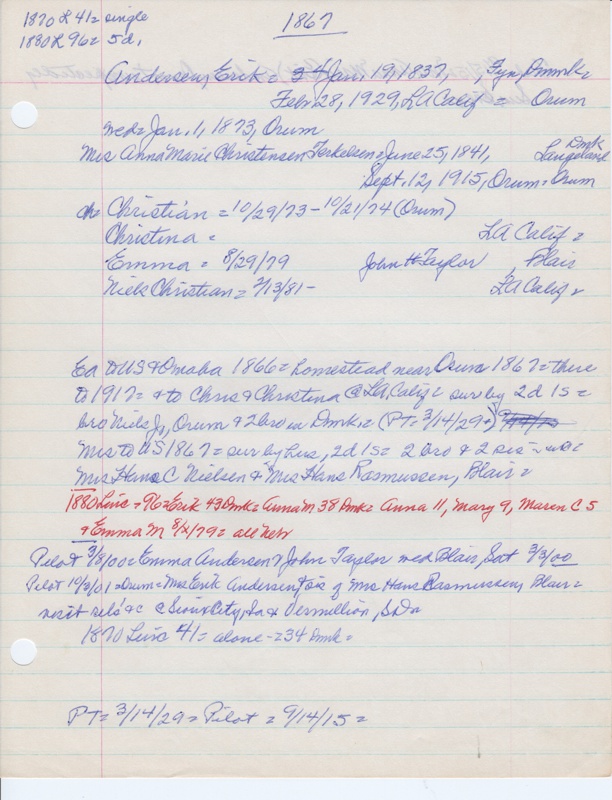 1870 L 41 = single
1880 L 96 = 5d,
1867
Andersen, Erik = Jan. 19, 1837, Fyn, Dnmk =
Feb. 28, 1929, LA Calif = Orum
med = Jan. 1, 1873, Orum
Mrs Anna Marie Christensen Terkelsen = June 25, 1841, Langeland Dmk
Sept. 12, 1915, Orum = Orum
ch = Christian = 10/29/73 - 10/21/74 (Orum)
Christina = LA Calif =
Emma = 8/29/79 John H Taylor, Blair
Niels Christian = 2/13/81 - LA Calif =
Ea to US & Omaha 1866 = homestead near Orum 1867 = there
to 1917 = & to Chris & Christina @ LA, Calif = sur by 2d 1s =
bro Niels Jr, Orum & 2 bro in Dmk, = (PT = 3/14/29 =)
Mrs to US 1867 = sur by hus, 2d 1s = 2 bro & 2 sis =
Mrs Hans C Nielsen & Mrs Hans Rasmussen, Blair =
1880 Linc = 96 = Erik 43 Dmk = Anna M 38 Dmk = Anna 11, Mary 9, Maren C 5
& Emma M 8/12/79 = all Neb
Pilot 3/8/00 = Emma Andersen & John Taylor med Blair, Sat 3/3/00
Pilot 10/2/01 = Orum = Mrs Erik Andersen sis of Mrs Hans Rasmussen, Blair =
visit rels &c @ Sioux City, Ia & Vermillion, S Da
1870 Linc 41 = alone - = 34 Dmk =
PT = 3/14/29 = Pilot = 9/14/15 =